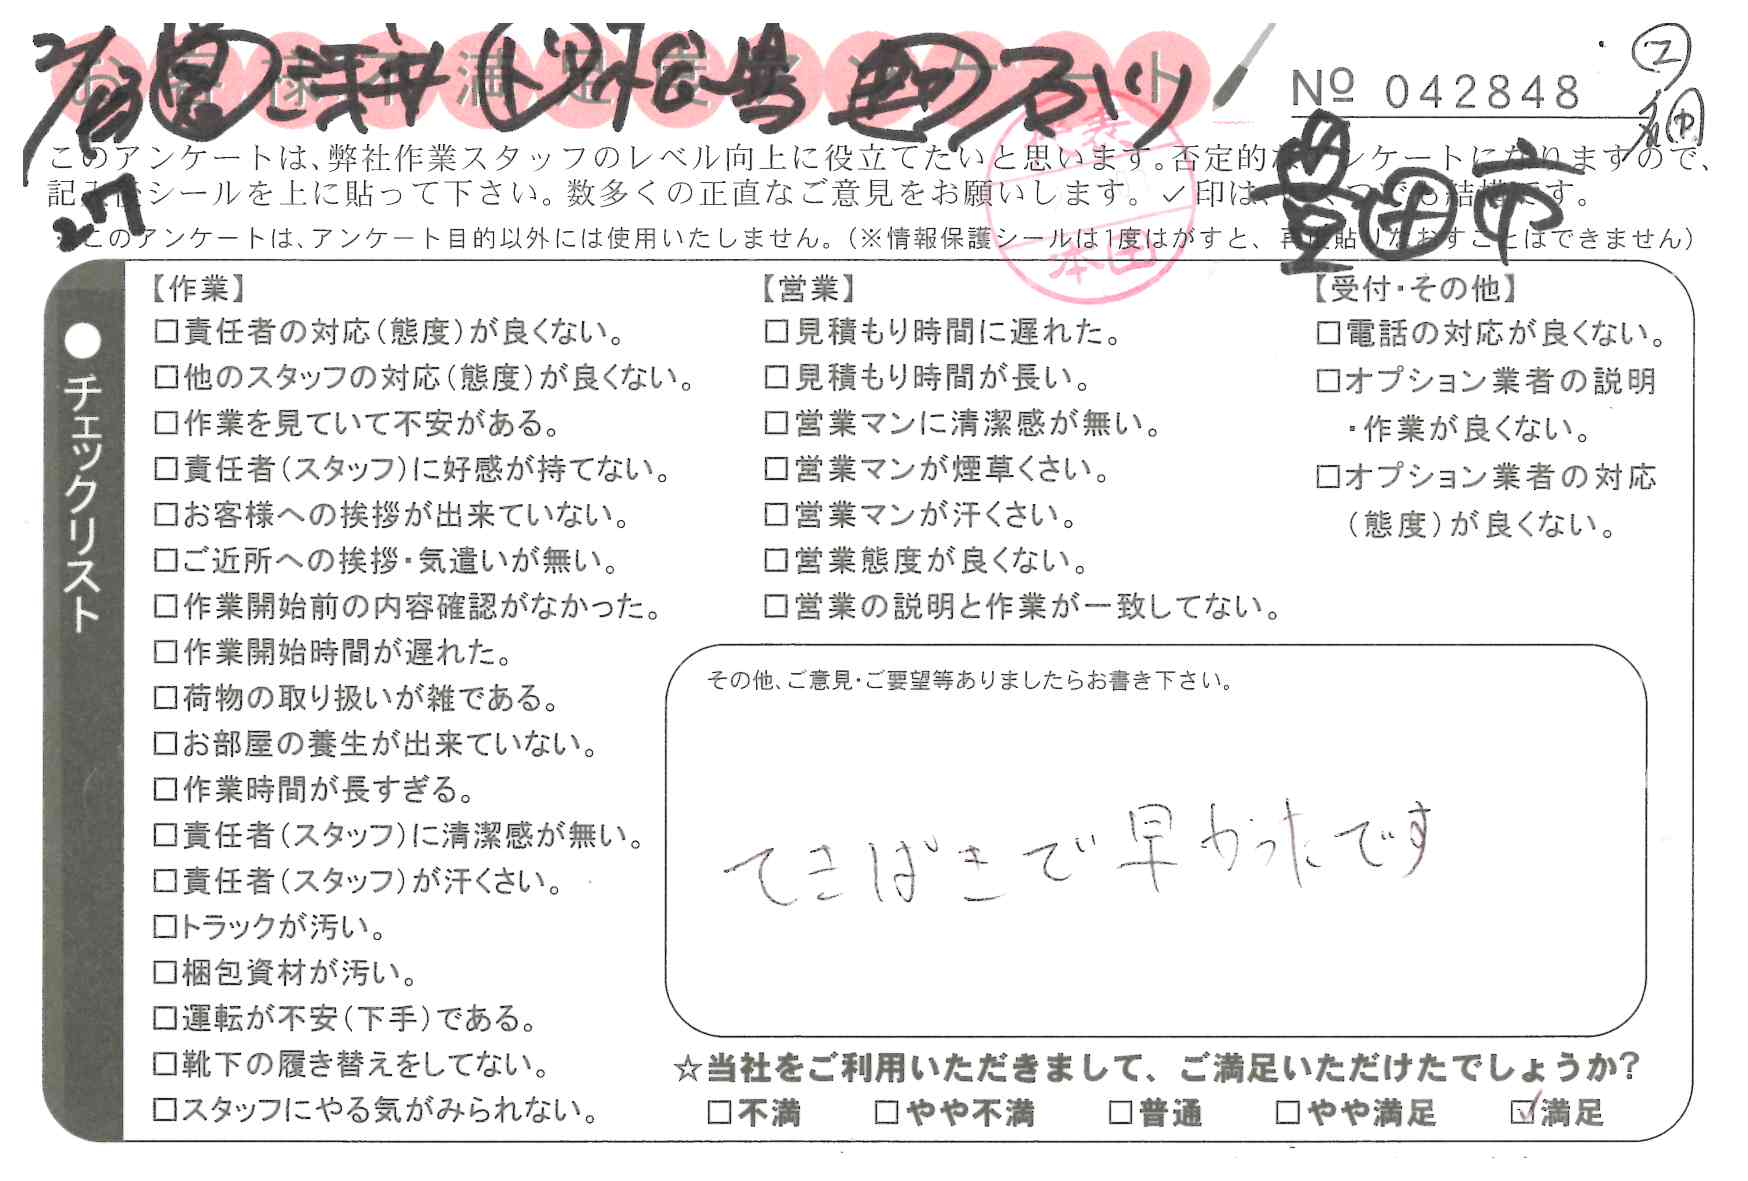 お客様不満足度アンケート
No 042848
豊田市
このアンケートは、弊社作業スタッフのレベル向上に役立てたいと思います。否定的なアンケートになりますので、
記入後シールを上に貼って下さい。数多くの正直なご意見をお願いします。✓印は、いくつでも結構です。
※このアンケートは、アンケート目的以外には使用いたしません。(※情報保護シールは1度はがすと、再度貼りなおすことはできません)
本田
●チェックリスト
【作業】
□責任者の対応(態度)が良くない。
□他のスタッフの対応(態度)が良くない。
□作業を見ていて不安がある。
□責任者(スタッフ)に好感が持てない。
□お客様への挨拶が出来ていない。
□ご近所への挨拶・気遣いが無い。
□作業開始前の内容確認がなかった。
□作業開始時間が遅れた。
□荷物の取り扱いが雑である。
□お部屋の養生が出来ていない。
□作業時間が長すぎる。
□責任者(スタッフ)に清潔感が無い。
□責任者(スタッフ)が汗くさい。
□トラックが汚い。
□梱包資材が汚い。
□運転が不安(下手)である。
□靴下の履き替えをしてない。
□スタッフにやる気がみられない。
【営業】
□見積もり時間に遅れた。
□見積もり時間が長い。
□営業マンに清潔感が無い。
□営業マンが煙草くさい。
□営業マンが汗くさい。
□営業態度が良くない。
□営業の説明と作業が一致してない。
【受付・その他】
□電話の対応が良くない。
□オプション業者の説明
・作業が良くない。
□オプション業者の対応
(態度)が良くない。
その他、ご意見・ご要望等ありましたらお書き下さい。
てきぱきで早かったです
☆当社をご利用いただきまして、ご満足いただけたでしょうか?
□不満 □やや不満 □普通 □やや満足 ☑満足